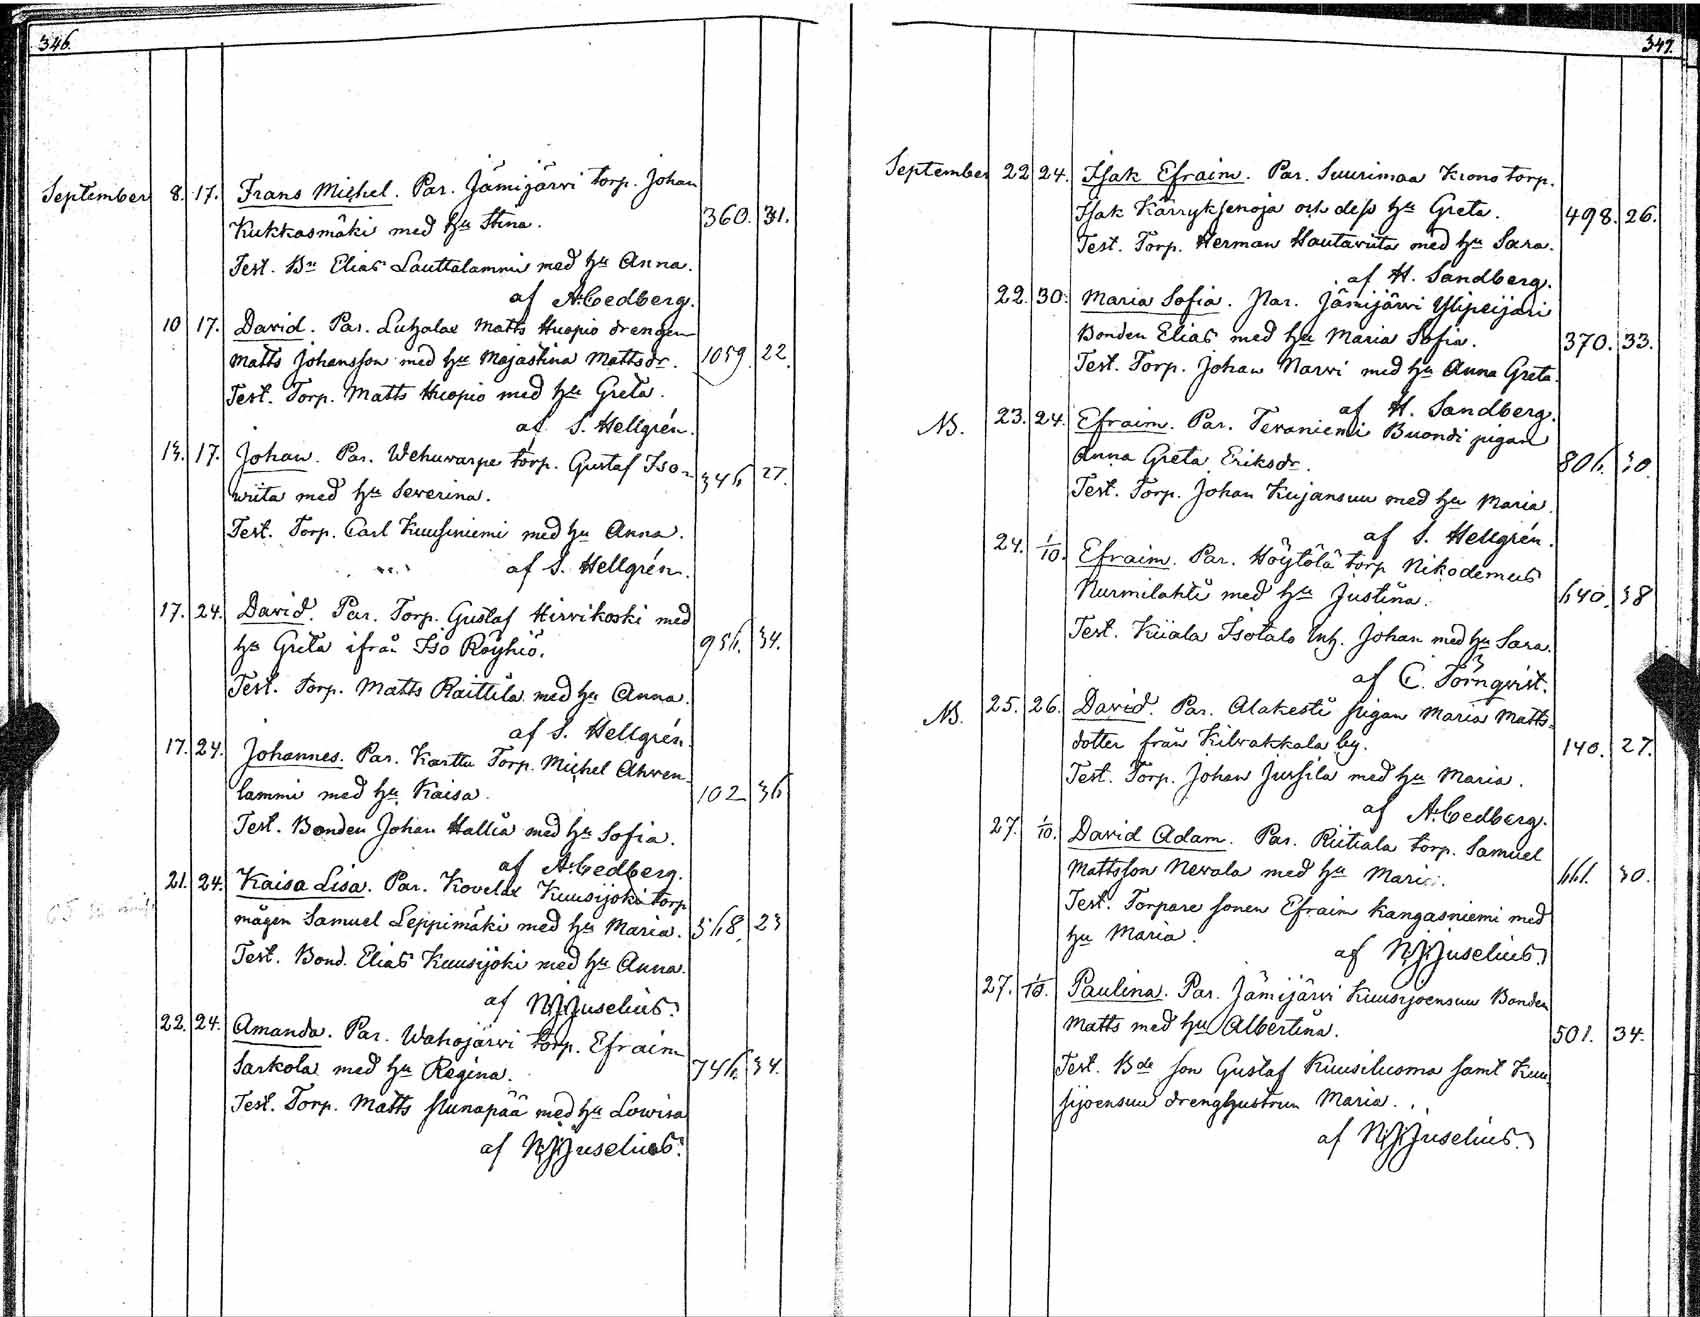 346.
September 8. 17. Frans Michel. Par. Jämijärvi torp. Johan
Kukkasmäki med hu Stina. 360. 31.
Test. Bn Elias Lauttalammi med hu Anna.
af A. Cedberg.
10 17. David. Par. Luhalax Matts Huopio drengen
Matts Johansson med hu Majastina Mattsdr. 1059. 22.
Test. Torp. Matts Huopio med hu Greta.
af S. Hellgrén.
13. 17. Johan. Par. Wehuvarpe torp. Gustaf Iso-
wiita med hu Severina. 346 27.
Test. Torp. Carl Kuusiniemi med hu Anna.
af S. Hellgrén.
17. 24. David. Par. Torp. Gustaf Hirvikoski med
hu Greta ifrån Iso Röyhiö. 956. 34.
Test. Torp. Matts Raittila med hu Anna.
af S. Hellgrén.
17. 24. Johannes. Par. Karttu Torp. Michel Ahven-
lammi med hu Kaisa. 102 36
Test. Bonden Johan Hallia med hu Sofia.
af A. Cedberg.
21. 24. Kaisa Lisa. Par. Kovelax Kuusijoki torp
mågen Samuel Leppimäki med hu Maria. 568. 23
Test. Bond. Elias Kuusijoki med hu Anna.
af N. J. Juselius.
22. 24. Amanda. Par. Wahojärvi torp. Efraim
Sarkola med hu Regina. 746. 34.
Test. Torp. Matts Nunapää med hu Lowisa
af N. J. Juselius.
347.
September 22 24. Isak Efraim. Par. Suurimaa Krono torp.
Isak Kärryksenoja och dess hu Greta. 498. 26.
Test. Torp. Herman Hautaviita med hu Sara.
af H. Sandberg.
22. 30. Maria Sofia. Par. Jämijärvi Ylipeijari
Bonden Elias med hu Maria Sofia. 370. 33.
Test. Torp. Johan Narvi med hu Anna Greta.
af H. Sandberg.
NB. 23. 24. Efraim. Par. Tevaniemi Buondi pigan
Anna Greta Eriksdr. 806. 30.
Test. Torp. Johan Kujansuu med hu Maria.
af S. Hellgrén.
24. 1/10. Efraim. Par. Höytölä torp Nikodemus
Nurmilahti med hu Justina. 640. 38
Test. Kiiala Isotalo Inh. Johan med hu Sara.
af C. Törnqvist.
NB. 25. 26. David. Par. Alakesti pigan Maria Matts-
dotter från Kilvakkala by. 140. 27.
Test. Torp. Johan Jussila med hu Maria.
af A. Cedberg.
27. 1/10. David Adam. Par. Riitiala torp. Samuel
Mattsson Nevala med hu Maria. 661. 30.
Test. Torpare sonen Efraim Kangasniemi med
hu Maria.
af N. J. Juselius.
27. 1/10. Paulina. Par. Jämijärvi Kuusijoensuu Bonden
Matts med hu Albertina. 501. 34.
Test. Bde son Gustaf Kuusiluoma samt Kuu
sijoensuu drenghustrun Maria.
af N. J. Juselius.